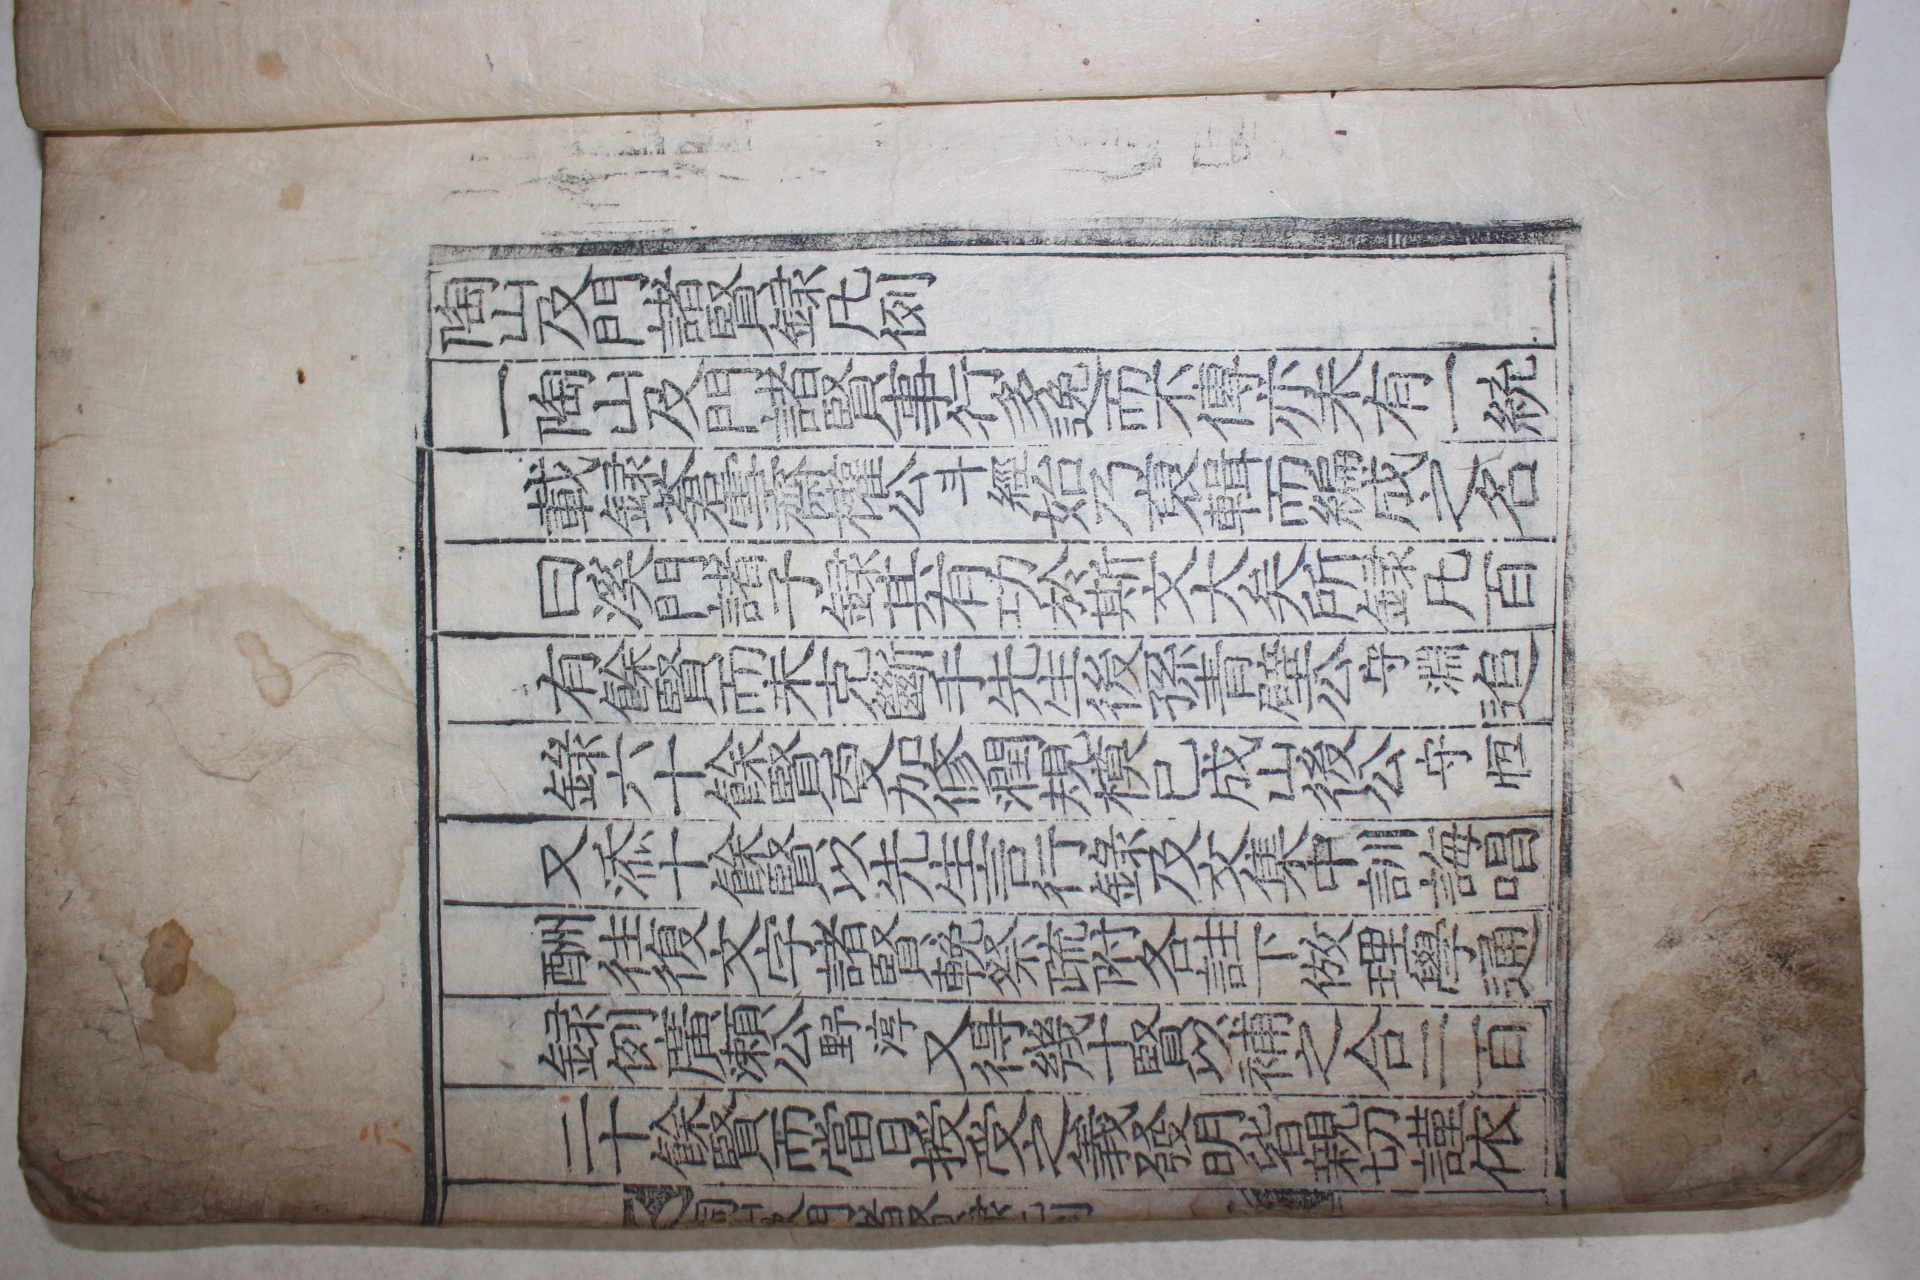 陶山及門諸賢録凡例
一陶山及門諸賢事行多逸而不傳亦未有一統
載録蒼雪齋權公斗經始乃裒輯而編成之名
曰溪門諸子録其有功於斯文大矣所録凡百
有餘賢而未克斷手先生後孫青壁公守淵追
錄六十餘賢更加修潤規模已成山後公守恒
又添十餘賢以先生言行錄及文集中訓誨唱
酬往復文字諸賢輓祭疏附各註下倣理學通
録例廣瀬公野淳又得幾十賢以補之合二百
二十餘賢而當日授受之義發明皆親切謹依